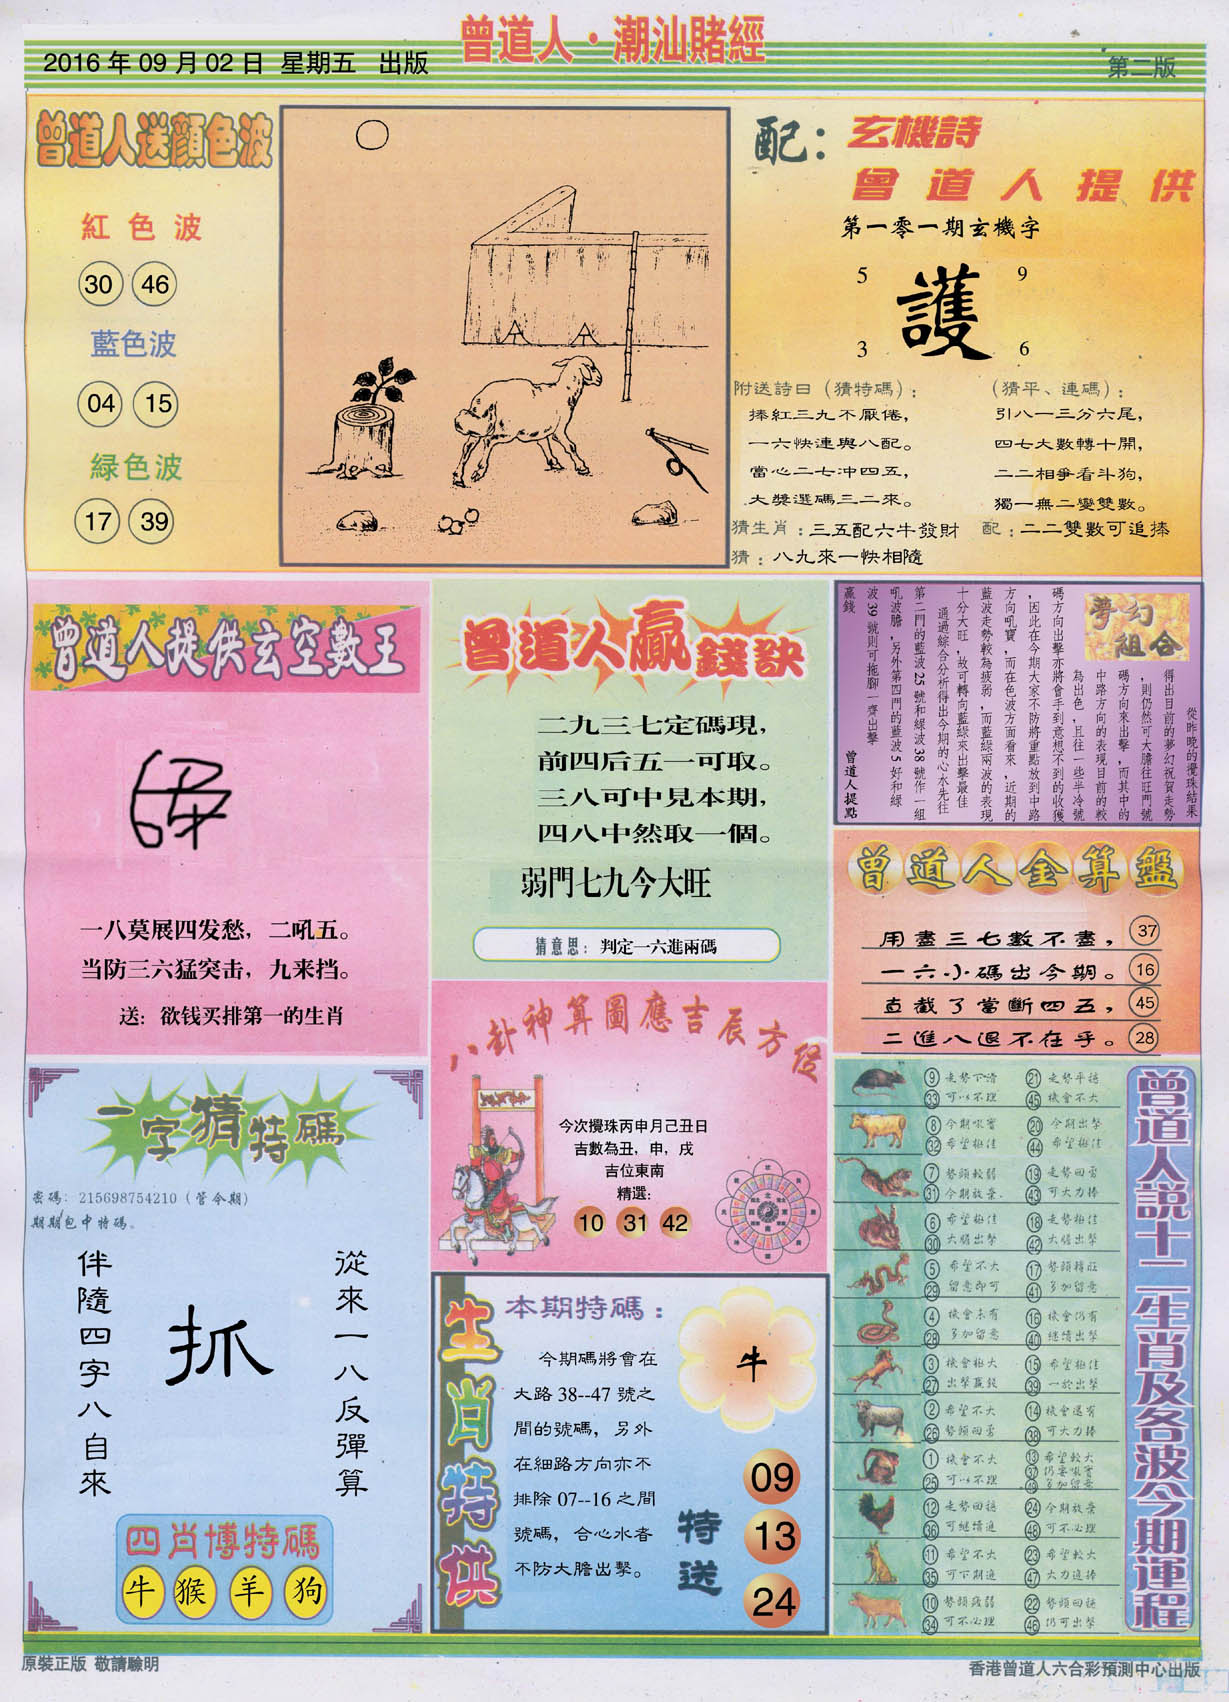 曾道人·潮汕賭經
2016年09月02日 星期五 出版
第二版
曾道人送顏色波
紅色波
30 46
藍色波
04 15
緑色波
17 39
配：玄機詩
曾道人提供
第一零一期玄機字
5 9
護
3 6
附送詩曰（猜特碼）：
捧紅三九不厭倦，
一六快連與八配。
當心二七冲四五，
大獎選碼三二來。
猜生肖：三五配六牛發財
猜：八九來一快相隨
（猜平、連碼）：
引八一三分六尾，
四七大數轉十開，
二二相爭看斗狗，
獨一無二變雙數。
配：二二雙數可追捧
曾道人提供玄空數王
一八莫展四发愁，二吼五。
当防三六猛突击，九来挡。
送：欲钱买排第一的生肖
曾道人贏錢訣
二九三七定碼現，
前四后五一可取。
三八可中見本期，
四八中然取一個。
弱門七九今大旺
猜意思：判定一六進兩碼
夢幻
組合
從昨晚的攪珠結果
得出目前的夢幻祝賀走勢
，則仍然可大膽往旺門號
碼方向來出擊，而其中的
中路方向的表現目前的較
為出色，且往一些半冷號
碼方向出擊亦將會手到意想不到的收獲
，因此在今期大家不防將重點放到中路
方向吼寶，而在色波方面看來，近期的
藍波走勢較為疲弱，而藍綠兩波的表現
十分大旺，故可轉向藍綠來出擊最佳
通過綜合分析得出今期的心水先往
第二門的藍波25號和綠波38號作一組
吼波膽，另外第四門的藍波5好和綠
波39號則可拖腳一齊出擊
贏錢
曾道人提點
曾道人金算盤
用盡三七數不盡， 37
一六小碼出今期。 16
直截了當斷四五， 45
二進八退不在乎。 28
八卦神算圖應吉辰方位
今次攪珠丙申月己丑日
吉數為丑，申，戌
吉位東南
精選：
10 31 42
一字猜特碼
密碼：215698754210（管今期）
期期包中特碼。
從來一八反彈算
抓
伴隨四字八自來
四肖博特碼
牛 猴 羊 狗
生肖特供
本期特碼：
今期碼將會在
大路38--47號之
間的號碼，另外
在細路方向亦不
排除07--16之間
號碼，合心水者
不防大膽出擊。
牛
特送
09
13
24
曾道人說十二生肖及各波今期運程
9 走勢下滑 21 走勢平穩
33 可以不理 45 機會不大
8 今期吼寶 20 今期出擊
32 希望極佳 44 希望極佳
7 勢頭較弱 19 走勢回勇
31 今期放棄 43 可大力捧
6 希望極佳 18 走勢極佳
30 大膽出擊 42 大膽出擊
5 希望不大 17 勢頭轉旺
29 留意即可 41 多加留意
4 機會未有 16 機會仍有
28 多加留意 40 繼續出擊
3 機會極大 15 希望極佳
27 出擊贏錢 39 一於出擊
2 希望不大 14 機會還有
26 勢頭回勇 38 可大力捧
1 機會不大 13 希望較大
25 可以不理 37 仍要吼實
49 多加留意
12 走勢回穩 24 今期放棄
36 可繼續追 48 可不必理
11 希望不大 23 希望較大
35 可下期追 47 大力追捧
10 勢頭疲弱 22 勢頭回穩
34 可不必理 46 仍可出擊
原裝正版 敬請驗明
香港曾道人六合彩預測中心出版